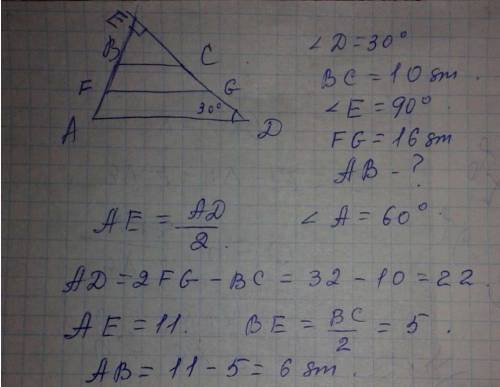 E
B C
F G
30°
A D
∠D = 30°
BC = 10 sm.
∠E = 90°.
FG = 16 sm
AB - ?
AE = AD/2. ∠A = 60°.
AD = 2FG - BC = 32 - 10 = 22.
AE = 11. BE = BC/2 = 5.
AB = 11 - 5 = 6 sm.